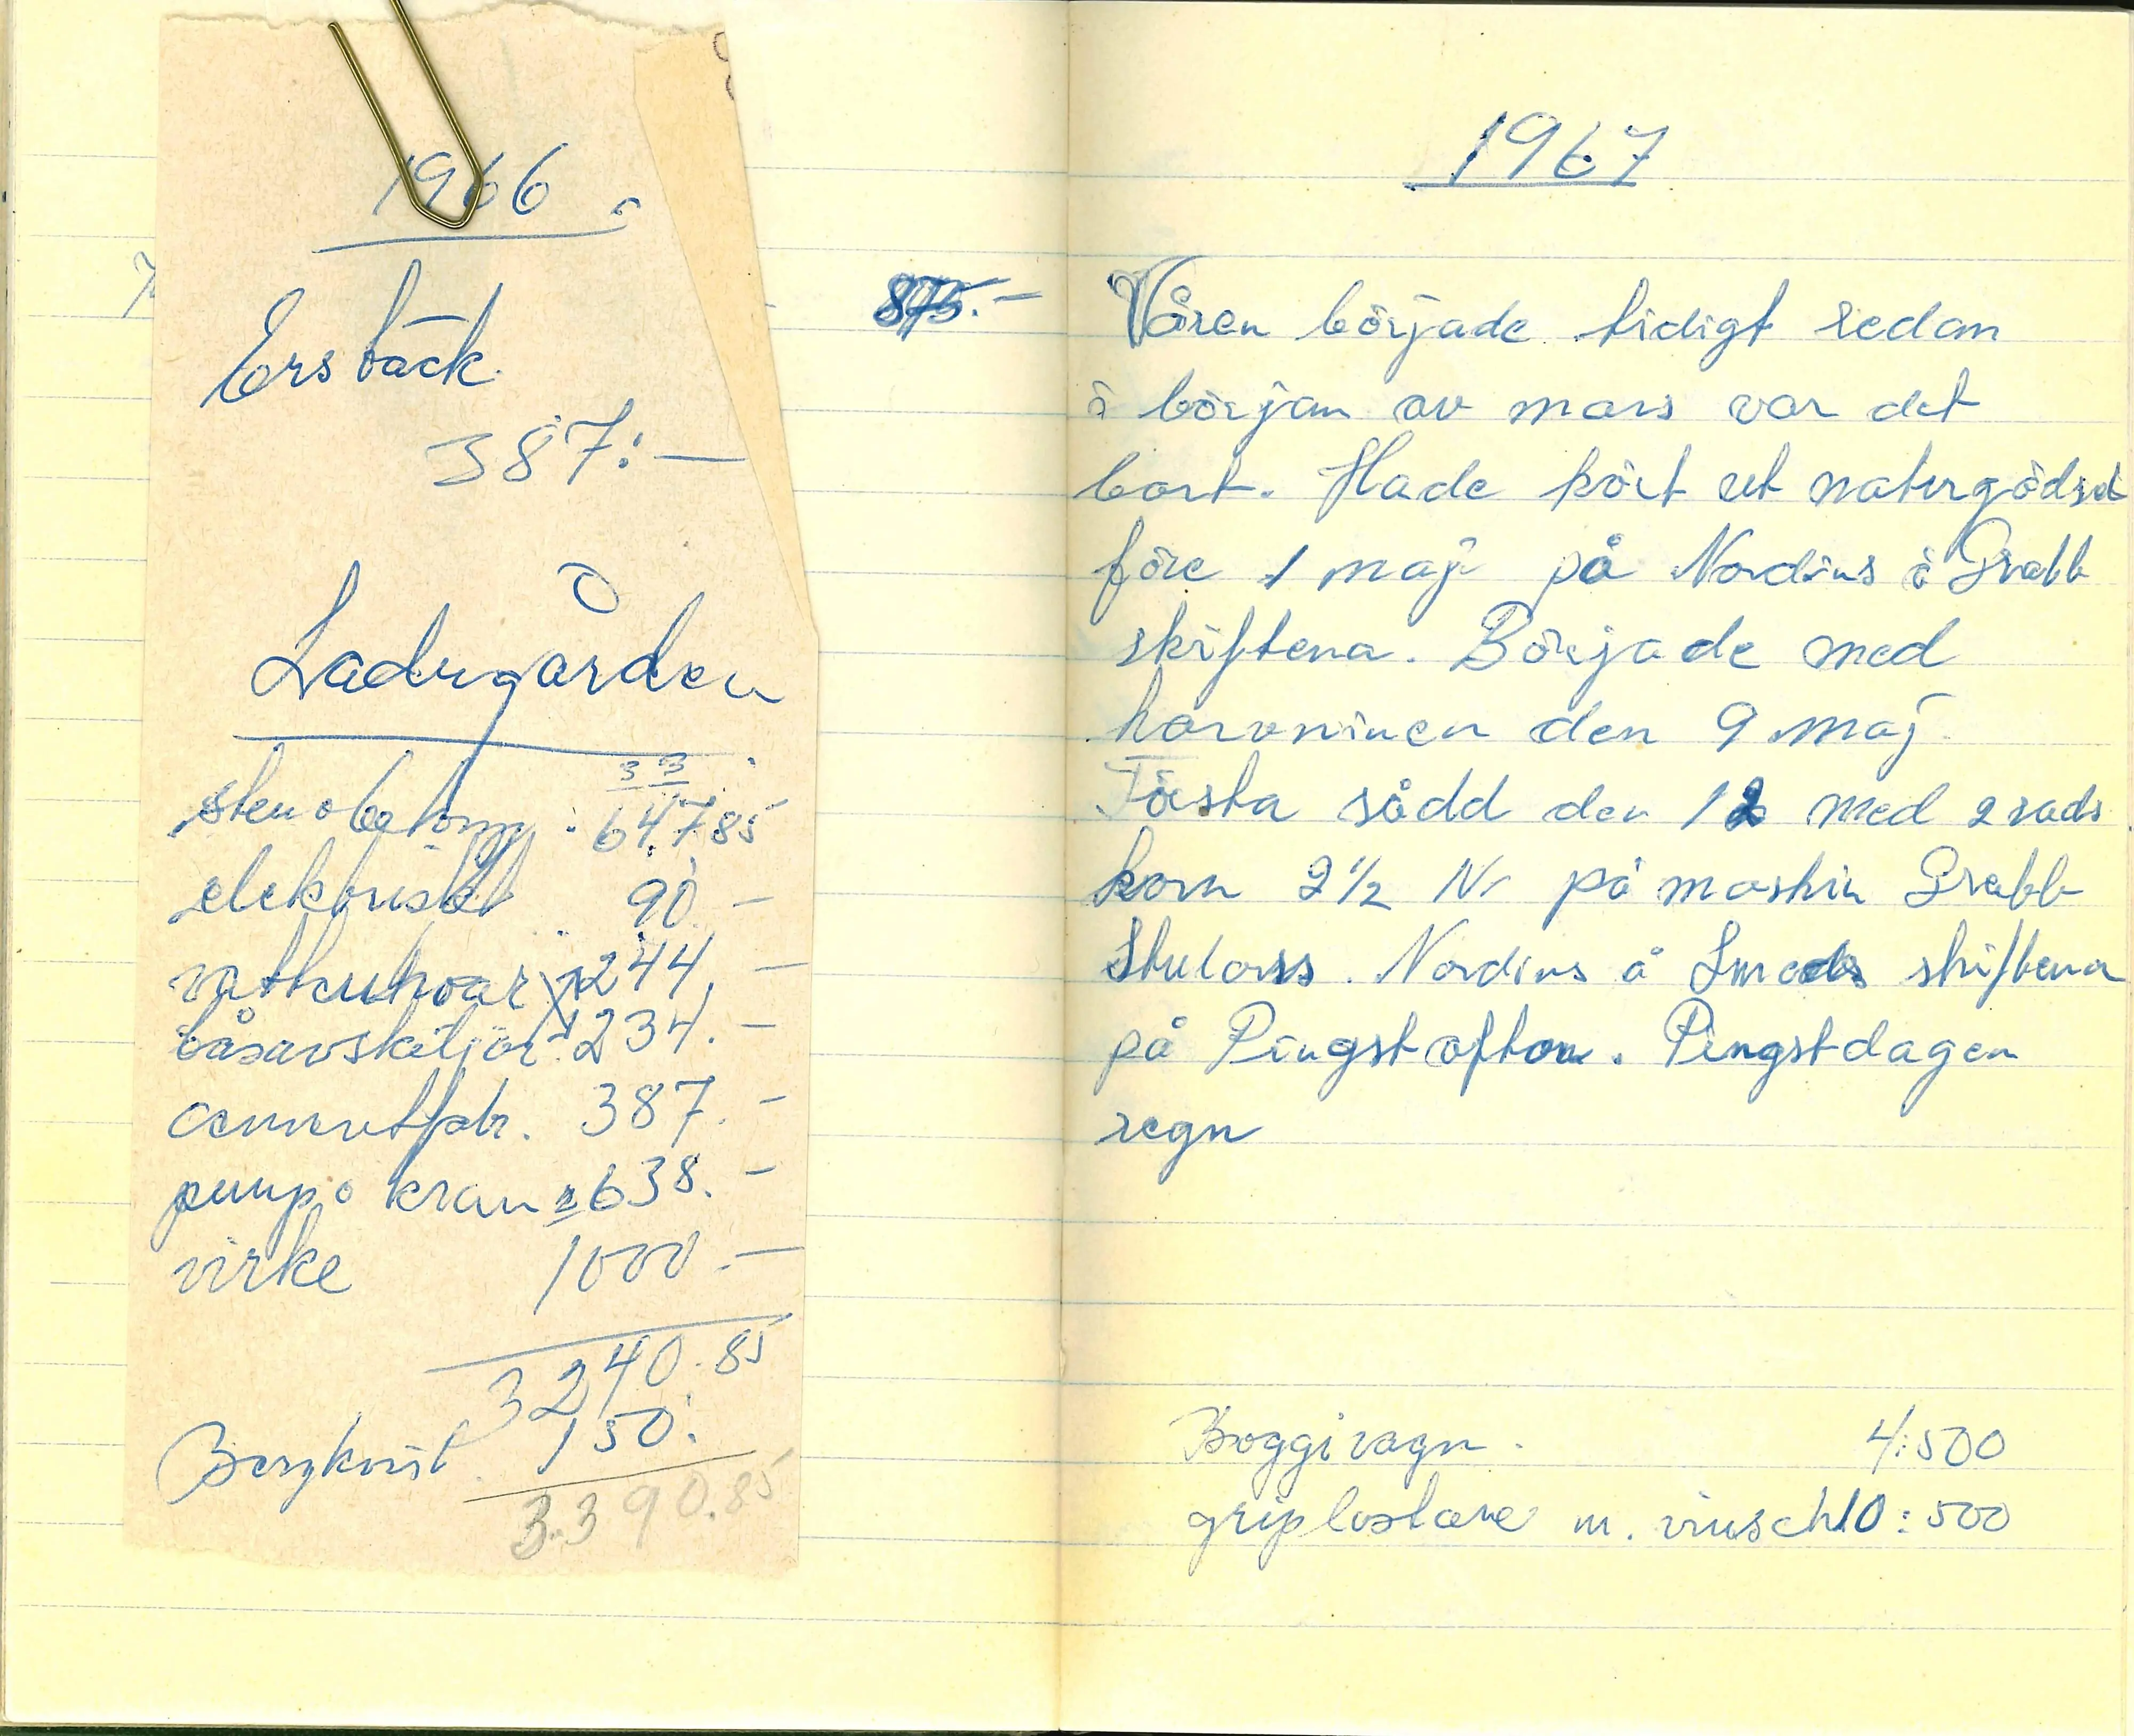 1966
Ersbäck
387:—
Ladugården
3 3
sten o betong : 647.85
elektriskt 90.—
vattenkoar 244.—
båsavskiljar 234.—
cementplr. 387.—
pump o kran 638.—
virke 1000.—
3240.85
Bergkvist 150.
3.390.85
875.—
1967
Våren började tidigt redan
i början av mars var det
bart. Hade kört ut naturgödsel
före 1 maj på Nordins å Grabb
skiftena. Började med
harvninen den 9 maj
Första sådd den 12 med 2 rads
korn 2 1/2 Nr på maskin Grabb
Nordins å Smeds skiftena
på Pingstafton. Pingstdagen
regn
Boggivagn. 4:500
griplastare m. vinsch 10:500